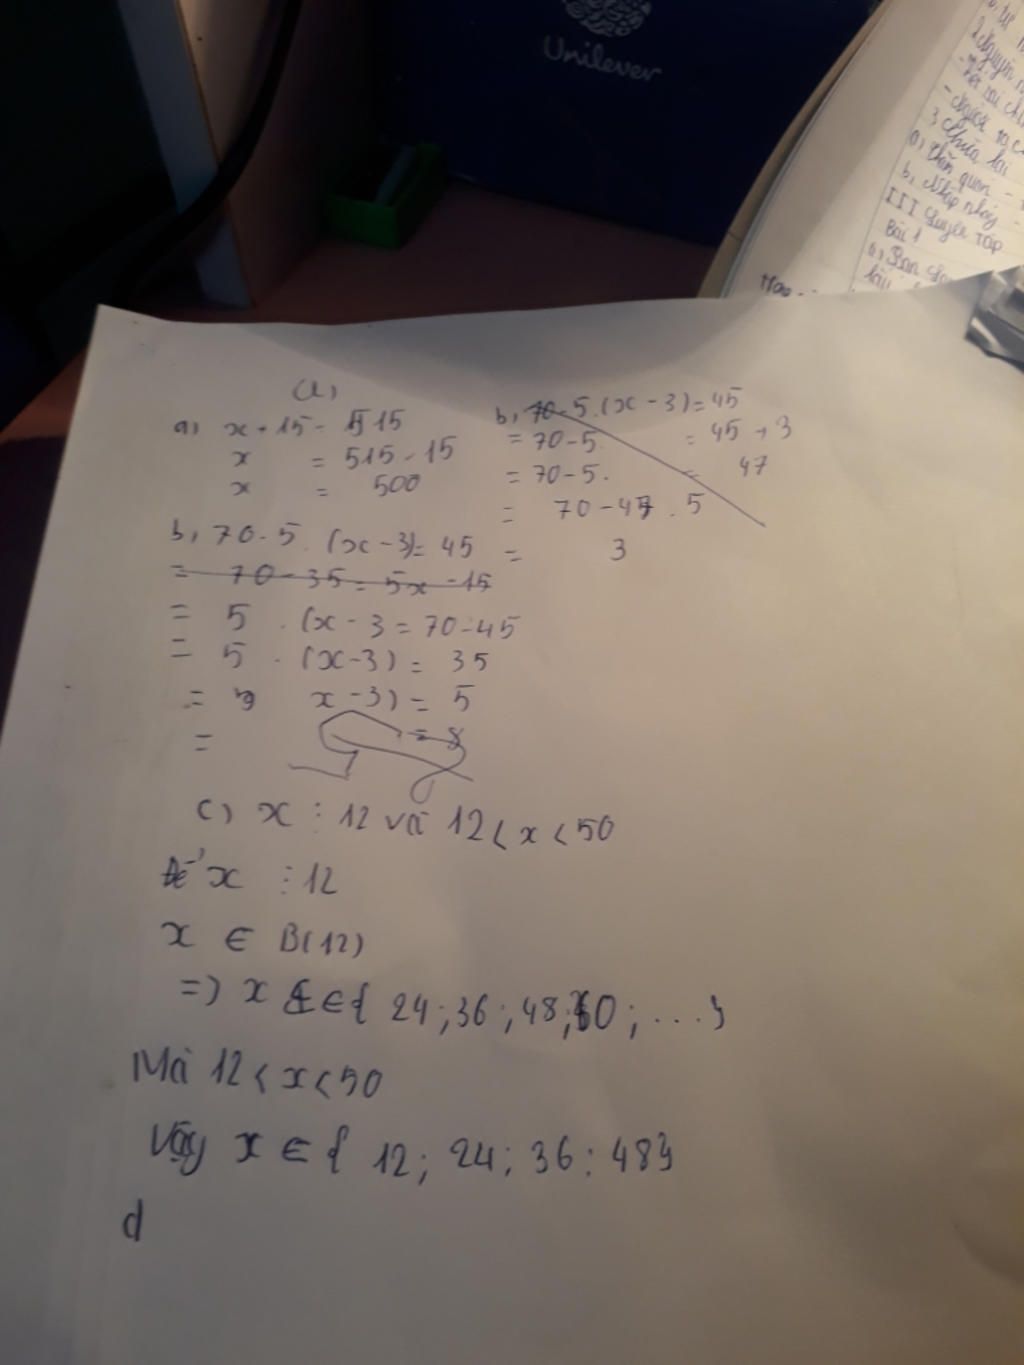 Unilever
a, x + 15 = 515
x = 515 - 15
x = 500
b, 70 - 5 . (x - 3) = 45
= 70 - 5 = 45 + 3
= 70 - 5 . = 47
= 70 - 47 . 5
= 3
b, 70 - 5 . (x - 3) = 45
= 70 - 35 = 5x - 15
= 5 . (x - 3 = 70 - 45
= 5 . (x - 3) = 35
= x - 3) = 5
= = 8
c) x ⋮ 12 và 12 < x < 50
Để x ⋮ 12
x ∈ B(12)
=) x ∈ { 24 ; 36 ; 48 ; 60 ; ... }
Mà 12 < x < 50
Vậy x ∈ { 12 ; 24 ; 36 ; 48 }
d
III Luyện tập
Bài 1